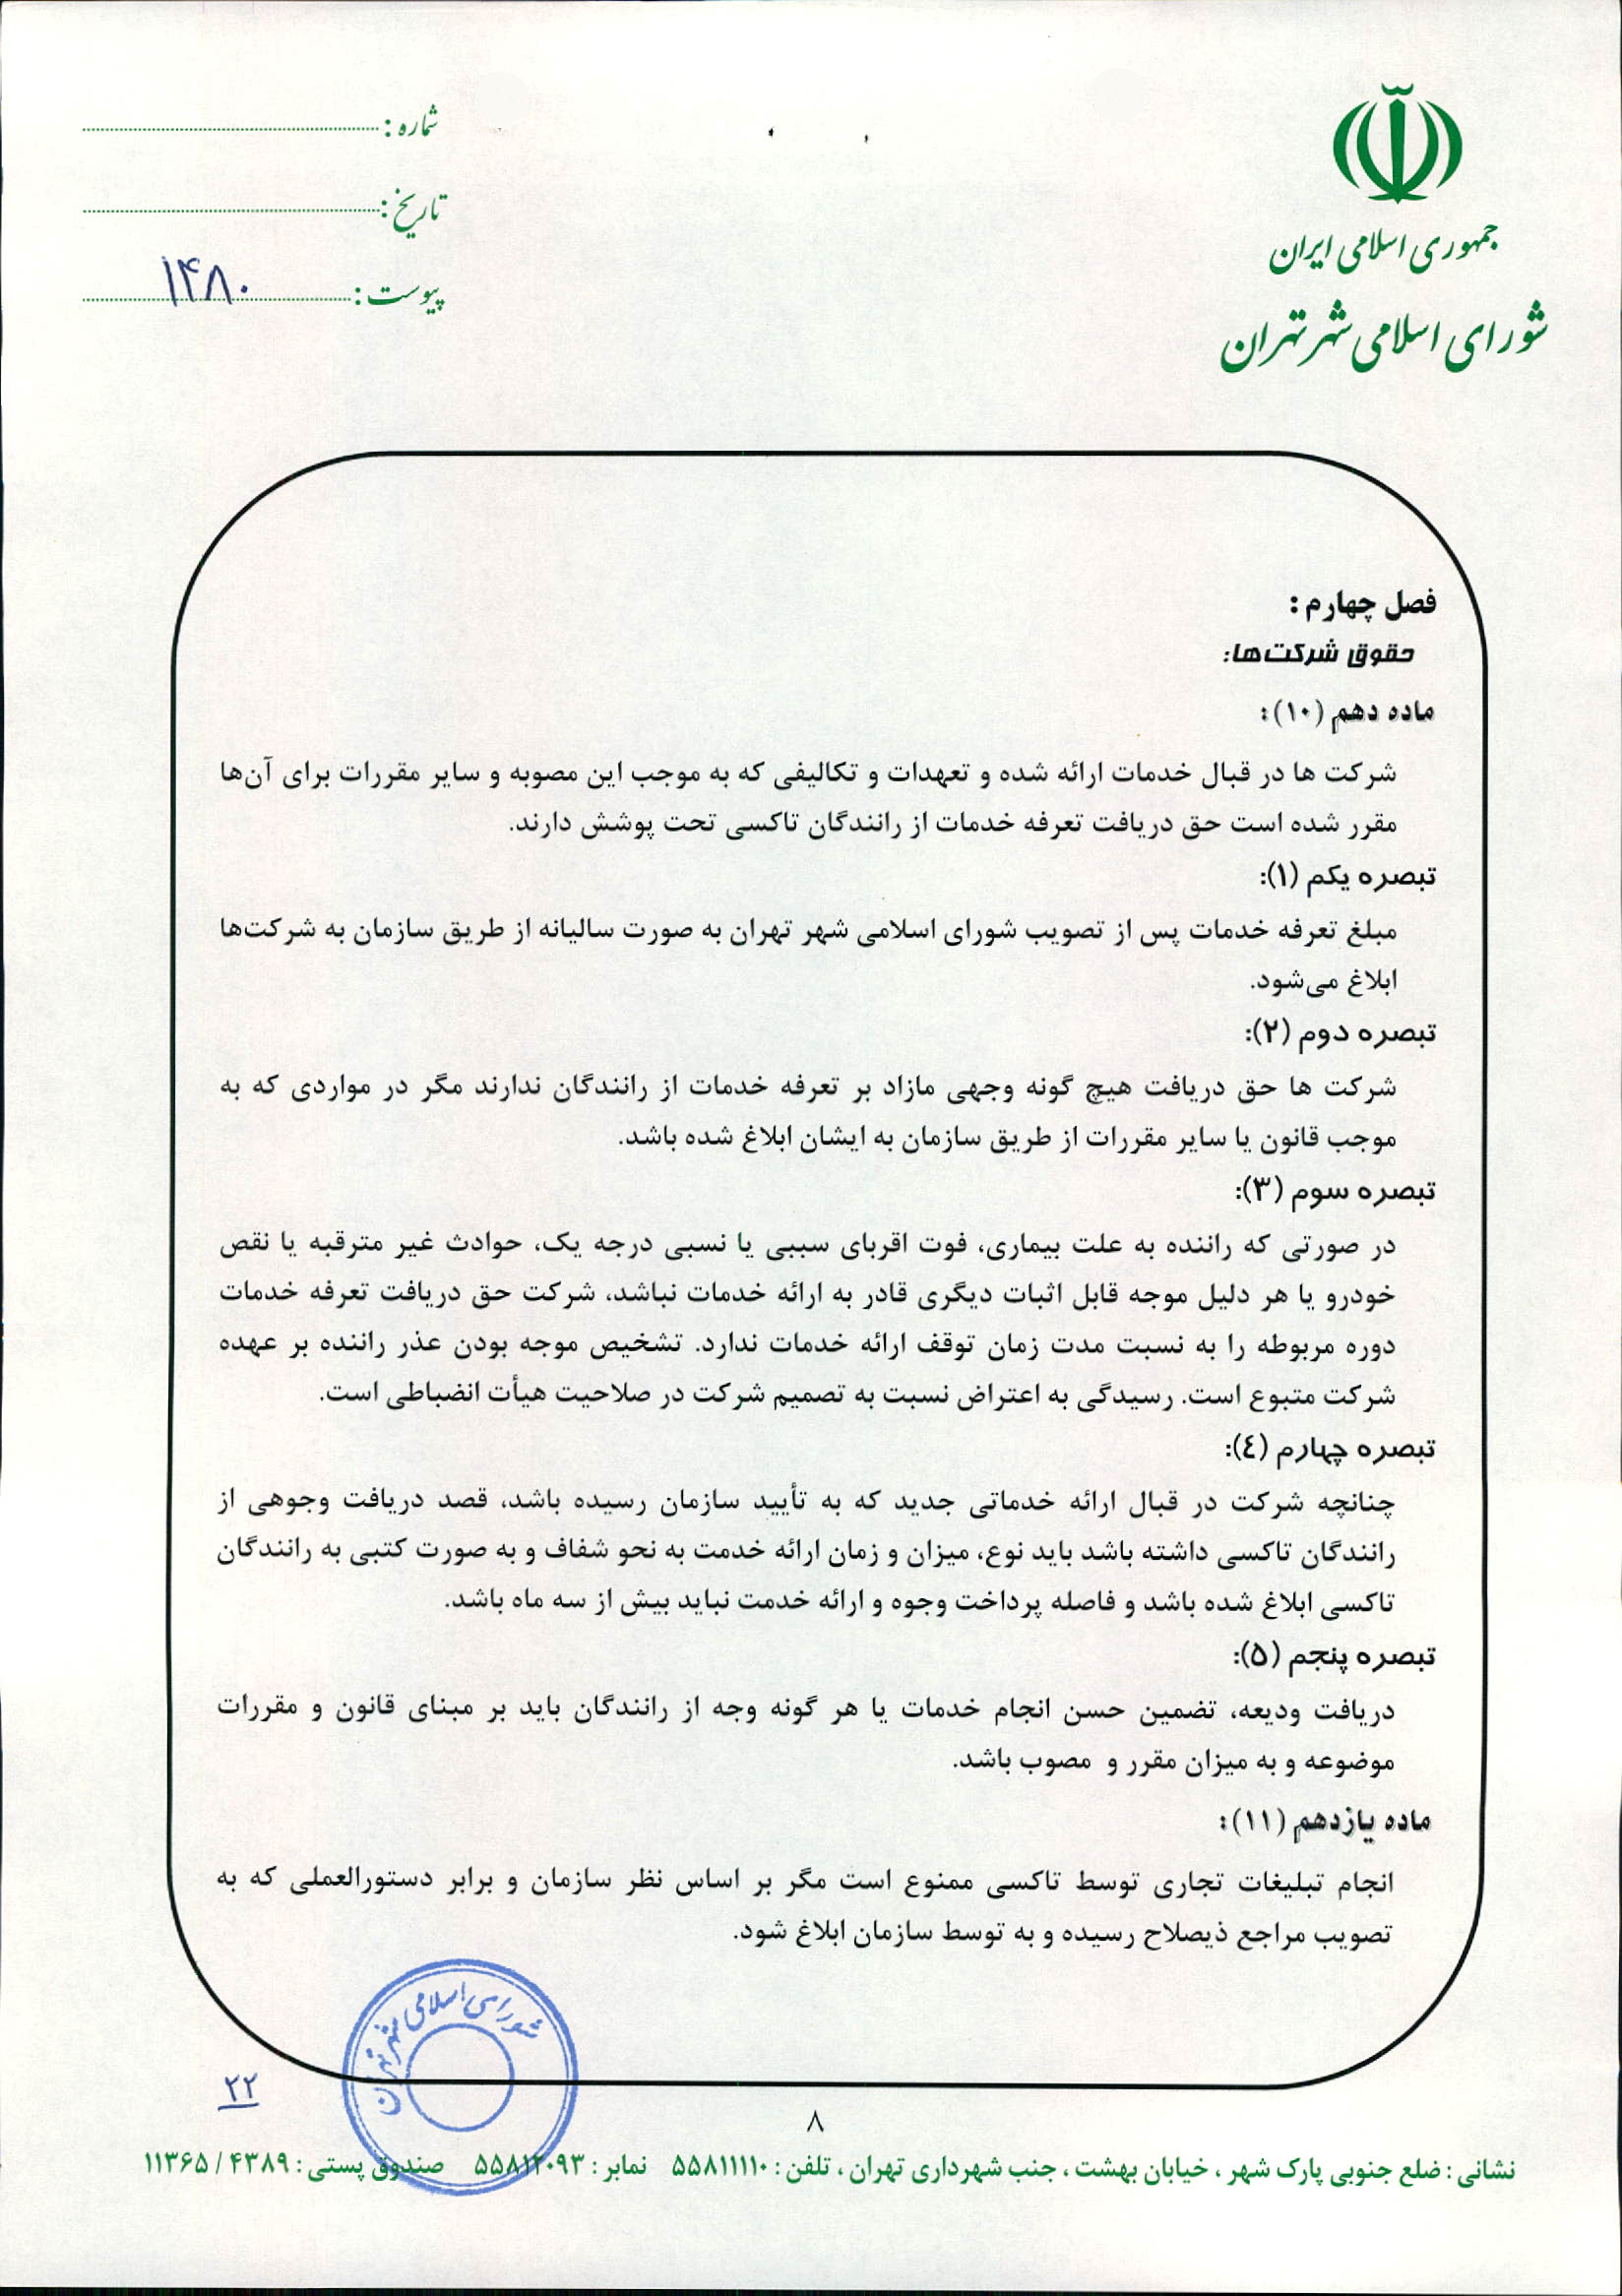 جمهوری اسلامی ایران
شورای اسلامی شهر تهران
شماره :
تاریخ :
پیوست : ۱۴۸۰
فصل چهارم :
حقوق شرکت‌ها:
ماده دهم (۱۰):
شرکت ها در قبال خدمات ارائه شده و تعهدات و تکالیفی که به موجب این مصوبه و سایر مقررات برای آن‌ها
مقرر شده است حق دریافت تعرفه خدمات از رانندگان تاکسی تحت پوشش دارند.
تبصره یکم (۱):
مبلغ تعرفه خدمات پس از تصویب شورای اسلامی شهر تهران به صورت سالیانه از طریق سازمان به شرکت‌ها
ابلاغ می‌شود.
تبصره دوم (۲):
شرکت ها حق دریافت هیچ گونه وجهی مازاد بر تعرفه خدمات از رانندگان ندارند مگر در مواردی که به
موجب قانون یا سایر مقررات از طریق سازمان به ایشان ابلاغ شده باشد.
تبصره سوم (۳):
در صورتی که راننده به علت بیماری، فوت اقربای سببی یا نسبی درجه یک، حوادث غیر مترقبه یا نقص
خودرو یا هر دلیل موجه قابل اثبات دیگری قادر به ارائه خدمات نباشد، شرکت حق دریافت تعرفه خدمات
دوره مربوطه را به نسبت مدت زمان توقف ارائه خدمات ندارد. تشخیص موجه بودن عذر راننده بر عهده
شرکت متبوع است. رسیدگی به اعتراض نسبت به تصمیم شرکت در صلاحیت هیأت انضباطی است.
تبصره چهارم (٤):
چنانچه شرکت در قبال ارائه خدماتی جدید که به تأیید سازمان رسیده باشد، قصد دریافت وجوهی از
رانندگان تاکسی داشته باشد باید نوع، میزان و زمان ارائه خدمت به نحو شفاف و به صورت کتبی به رانندگان
تاکسی ابلاغ شده باشد و فاصله پرداخت وجوه و ارائه خدمت نباید بیش از سه ماه باشد.
تبصره پنجم (۵):
دریافت ودیعه، تضمین حسن انجام خدمات یا هر گونه وجه از رانندگان باید بر مبنای قانون و مقررات
موضوعه و به میزان مقرر و مصوب باشد.
ماده یازدهم (۱۱):
انجام تبلیغات تجاری توسط تاکسی ممنوع است مگر بر اساس نظر سازمان و برابر دستورالعملی که به
تصویب مراجع ذیصلاح رسیده و به توسط سازمان ابلاغ شود.
شورای اسلامی شهر تهران
۲۲
۸
نشانی : ضلع جنوبی پارک شهر ، خیابان بهشت ، جنب شهرداری تهران ، تلفن : ۵۵۸۱۱۱۱۰ نمابر : ۵۵۸۱۲۰۹۳ صندوق پستی : ۴۳۸۹ / ۱۱۳۶۵